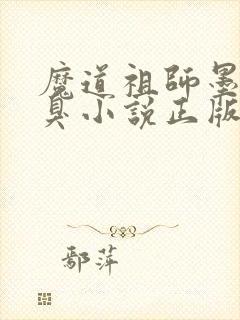 魔道祖師墨
臭小說正版
鄢萍